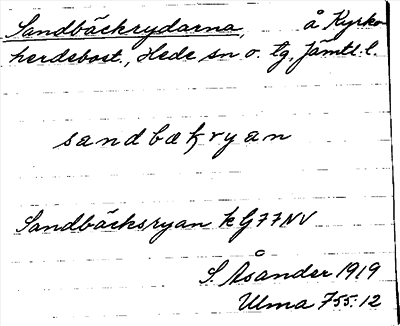 Sandbäckrydarna, å Kyrko-
herdebost., Hede sn o. tg, Jämtl. l.
sandbækryan
Sandbäcksryan k G77NV
S. Åsander 1919
Ulma 755:12